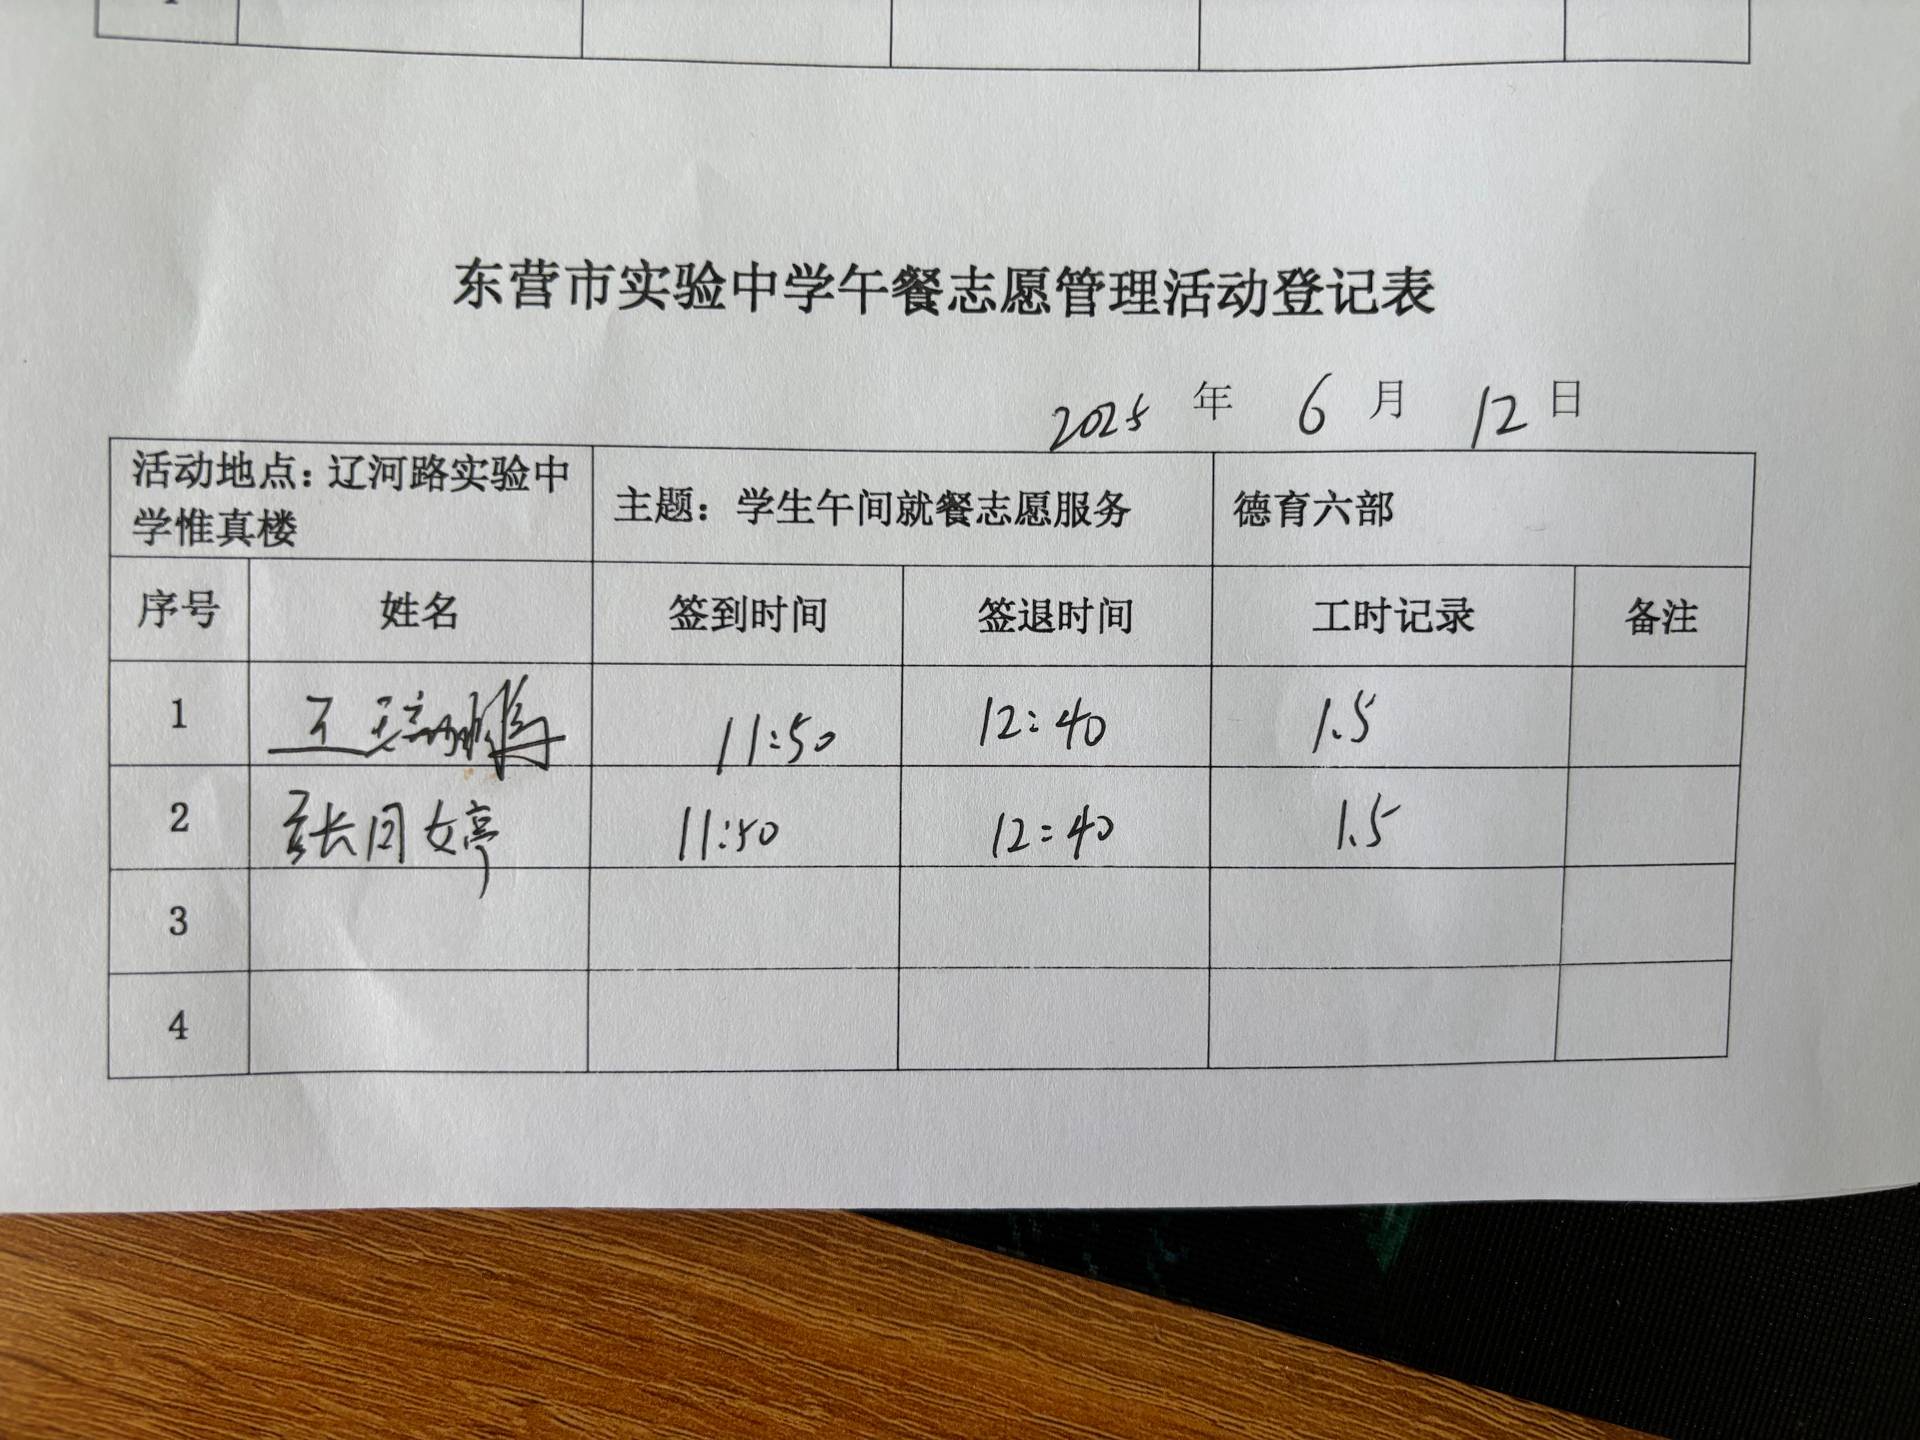 东营市实验中学午餐志愿管理活动登记表
2025 年 6 月 12 日
活动地点：辽河路实验中学惟真楼 主题：学生午间就餐志愿服务 德育六部
序号 姓名 签到时间 签退时间 工时记录 备注
1 王 11:50 12:40 1.5
2 张月婷 11:50 12:40 1.5
3
4